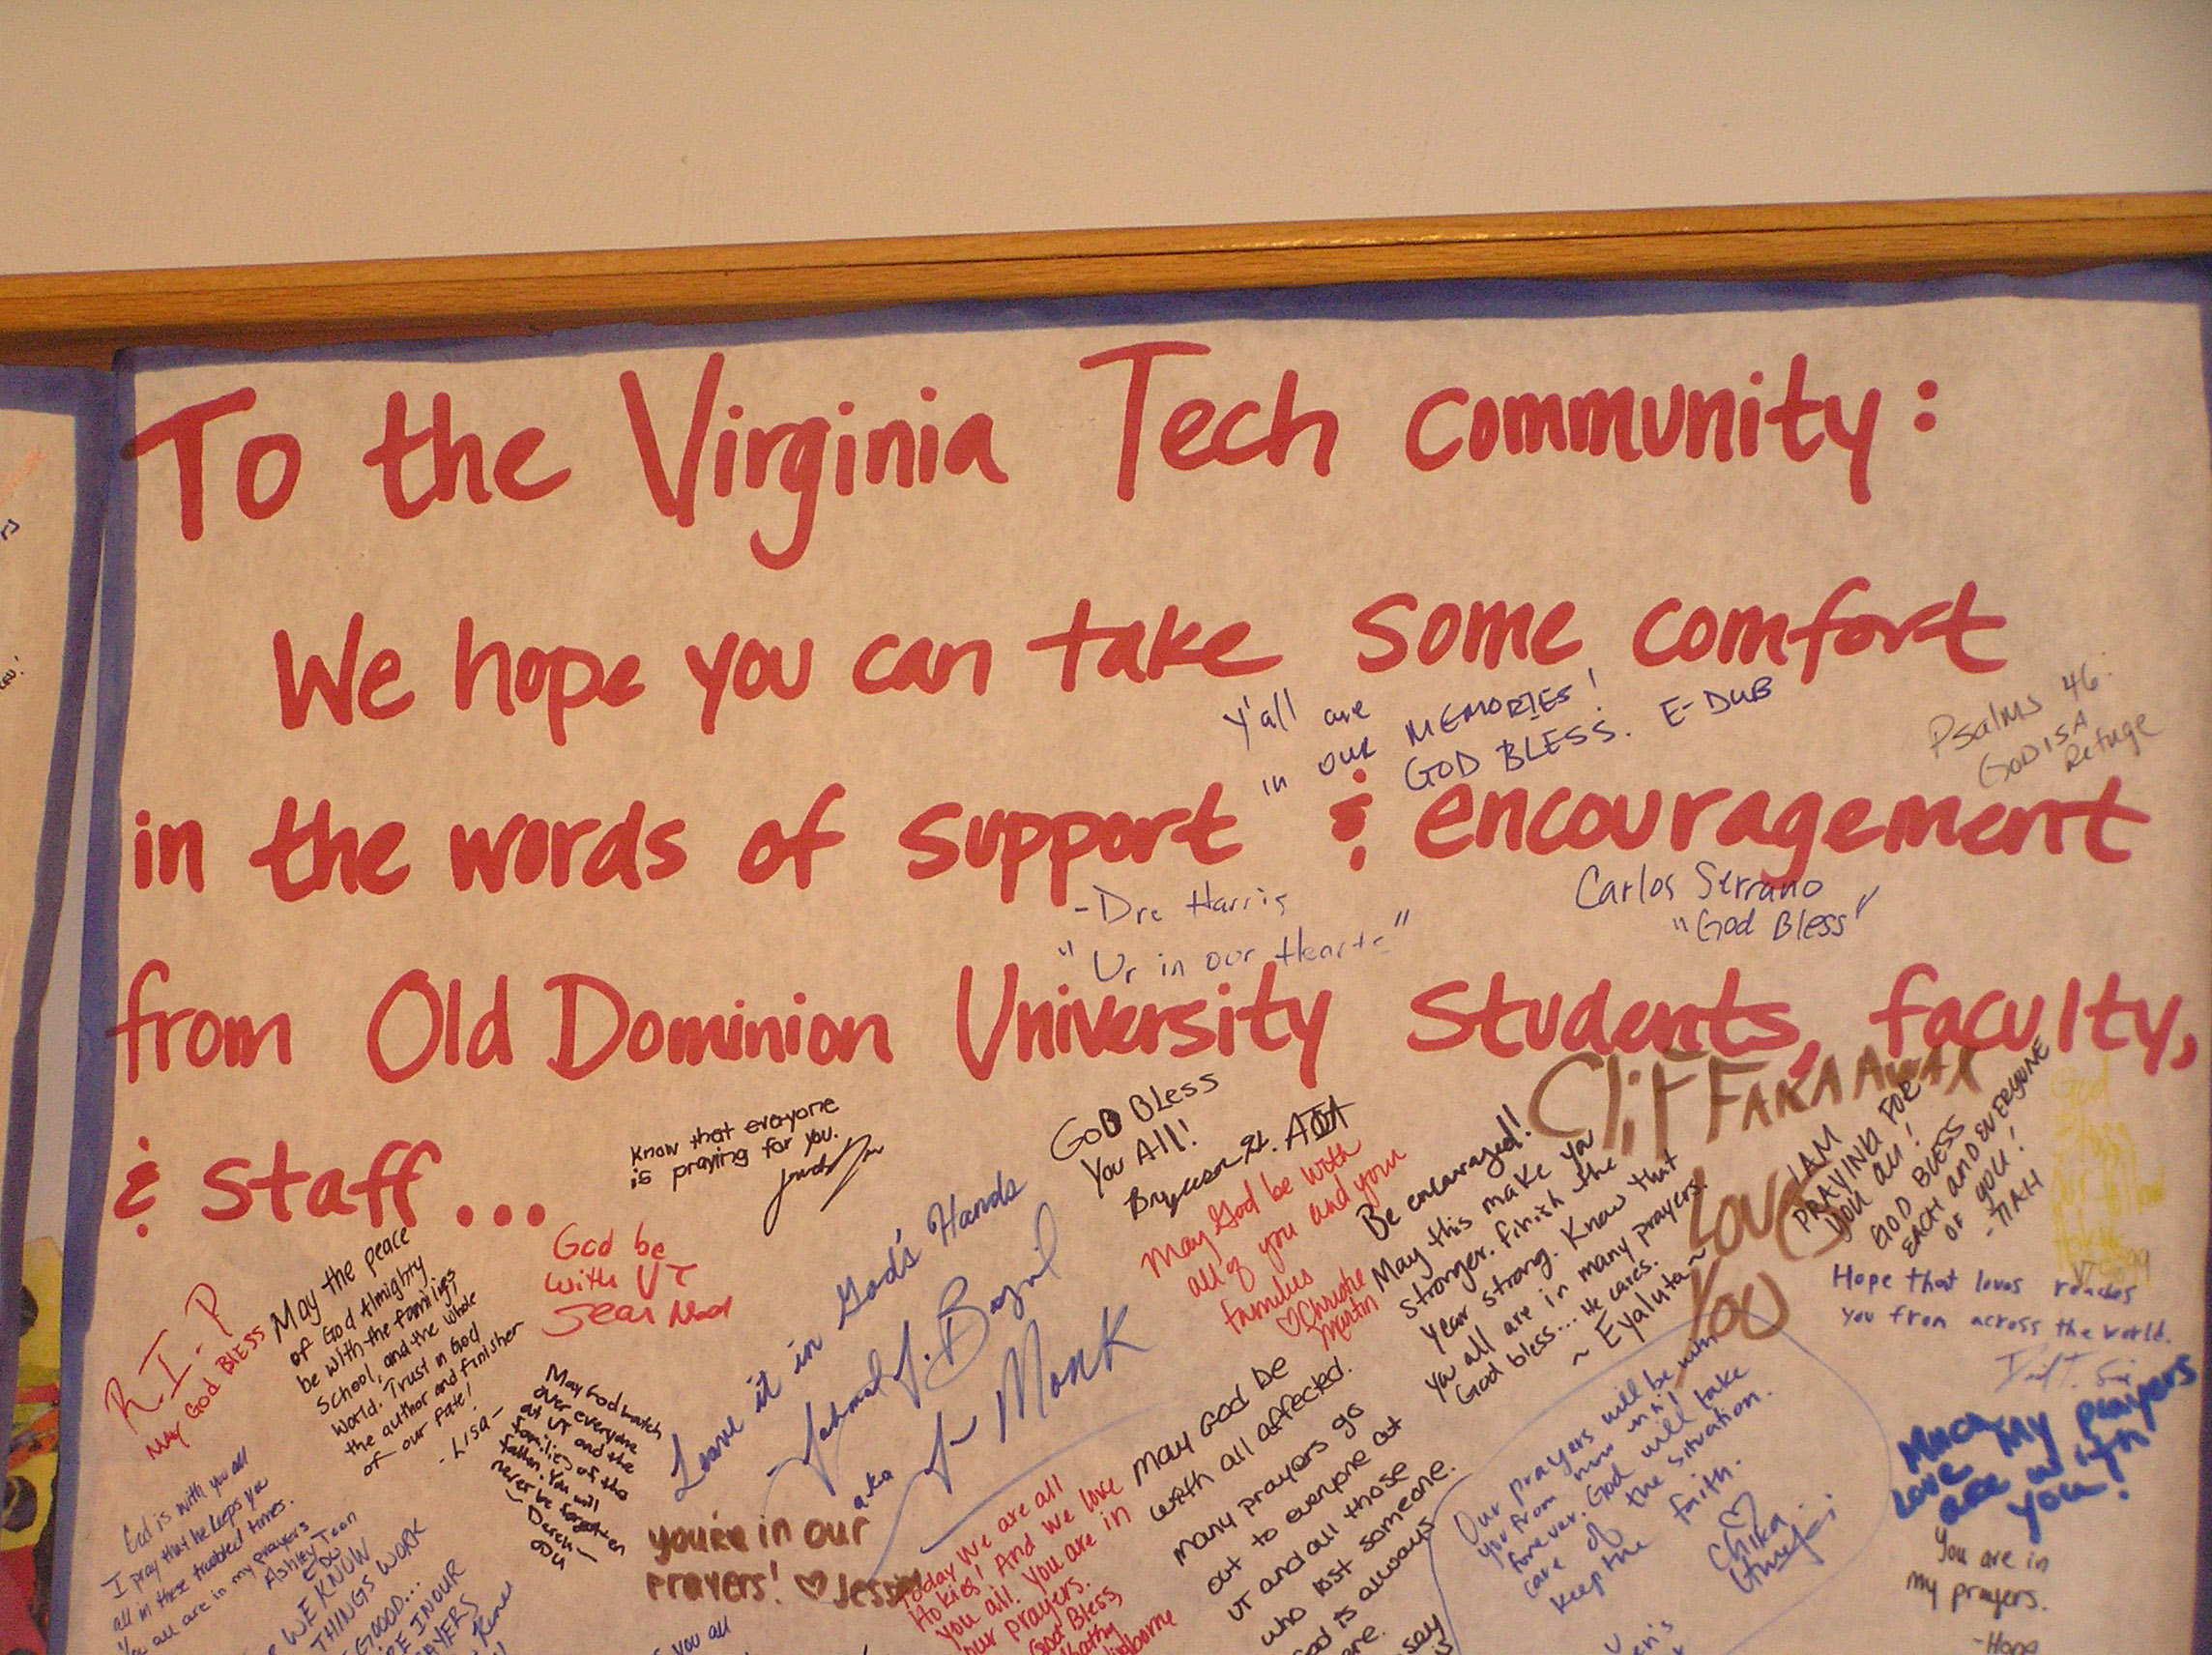 To the Virginia Tech community:
We hope you can take some comfort
in the words of support & encouragement
from Old Dominion University students, faculty,
& staff...
Y'all are
in our MEMORIES!
GOD BLESS. E-DUB
Psalms 46:
GOD IS A
Refuge
-Dre Harris
"Ur in our Hearts"
Carlos Serrano
"God Bless"
Know that everyone
is praying for you.
GOD BLess
You All!
May God be with
all of you and your
families
♡ Christie
Martin
Be encouraged!
May this make you
stronger. finish the
year strong. Know that
you all are in many prayers.
God bless... He cares.
~ Eyaluta ~
CliFF AKA
Love
You
I AM
PRAYING FOR
YOU ALL!
GOD BLESS
EACH AND EVERYONE
OF YOU!
-TIAH
God
Bless
Hope that loves reaches
you from across the world.
Much
Love My prayers
are with
you!
You are in
my prayers.
-Hope
God be
with VT
R.I.P
MAY GOD BLESS
May the peace
of God Almighty
be with the families,
School, and the whole
world. Trust in God
the author and finisher
of our fate!
- LISA -
May God watch
over everyone
at VT and the
families of the
fallen. You will
never be forgotten
Leave it in God's Hands
aka
Monk
you're in our
prayers! ♡
Today We are all
Hokies! And we love
you all. You are in
our prayers.
God Bless,
Kathy
May God be
with all affected.
Many prayers go
out to everyone at
VT and all those
who lost someone.
God is always
Our prayers will be with
you from now until
forever. God will take
care of the situation.
Keep the faith.
♡
Chika
God is with you all
I pray that he keeps you
all in these troubled times.
You all are in my prayers
Ashley Teon
ODU
WE KNOW
THINGS WORK
GOOD...
IN OUR
PRAYERS
you all
say